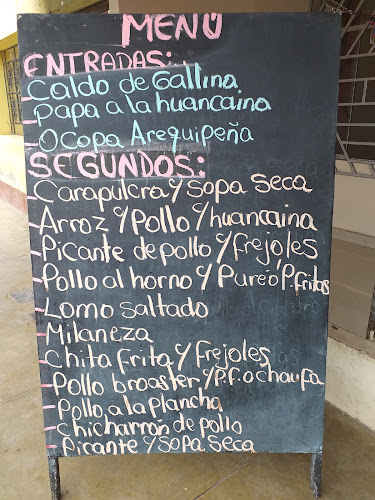 MENU
ENTRADAS:
-Caldo de Gallina
-Papa a la huancaina
-Ocopa Arequipeña
SEGUNDOS:
-Carapulcra y Sopa Seca
-Arroz y Pollo y huancaina
-Picante de pollo y frejoles
-Pollo al horno y Puré o P.fritas
-Lomo saltado
-Milaneza
-Chita frita y Frejoles
-Pollo broaster y P.f. o chaufa
-Pollo a la plancha
-Chicharrón de pollo
-Picante y Sopa Seca